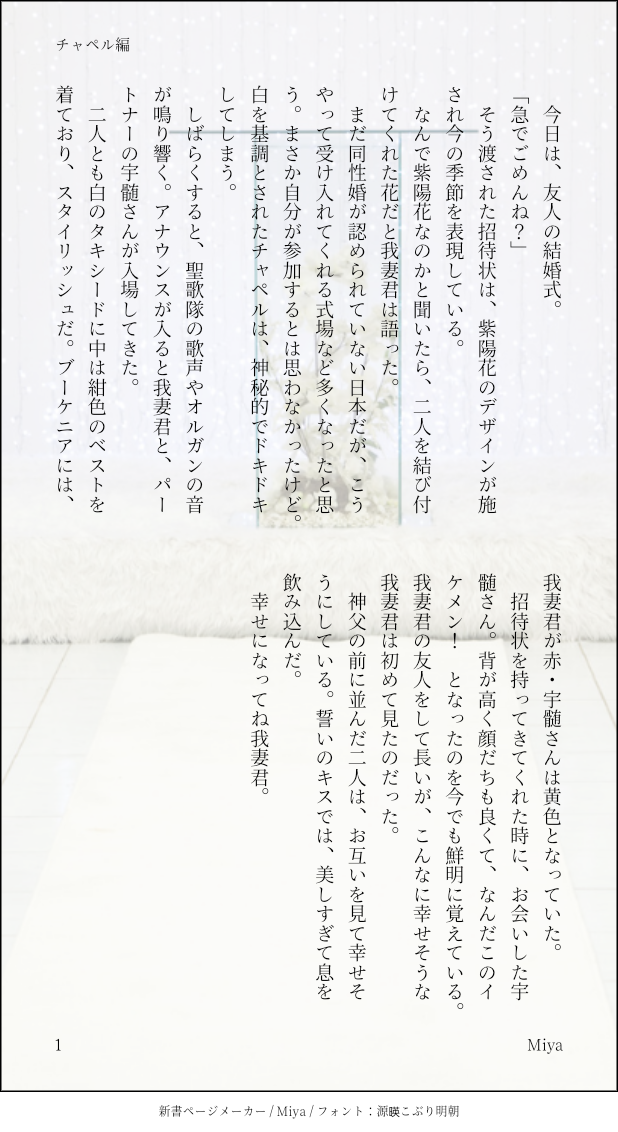 チャペル編
　今日は、友人の結婚式。
「急でごめんね？」
　そう渡された招待状は、紫陽花のデザインが施
され今の季節を表現している。
　なんで紫陽花なのかと聞いたら、二人を結び付
けてくれた花だと我妻君は語った。
　まだ同性婚が認められていない日本だが、こう
やって受け入れてくれる式場など多くなったと思
う。まさか自分が参加するとは思わなかったけど。
白を基調とされたチャペルは、神秘的でドキドキ
してしまう。
　しばらくすると、聖歌隊の歌声やオルガンの音
が鳴り響く。アナウンスが入ると我妻君と、パー
トナーの宇髄さんが入場してきた。
　二人とも白のタキシードに中は紺色のベストを
着ており、スタイリッシュだ。ブーケニアには、
我妻君が赤・宇髄さんは黄色となっていた。
　招待状を持ってきてくれた時に、お会いした宇
髄さん。背が高く顔だちも良くて、なんだこのイ
ケメン！　となったのを今でも鮮明に覚えている。
我妻君の友人をして長いが、こんなに幸せそうな
我妻君は初めて見たのだった。
　神父の前に並んだ二人は、お互いを見て幸せそ
うにしている。誓いのキスでは、美しすぎて息を
飲み込んだ。
　幸せになってね我妻君。
1
Miya
新書ページメーカー / Miya / フォント：源暎こぶり明朝